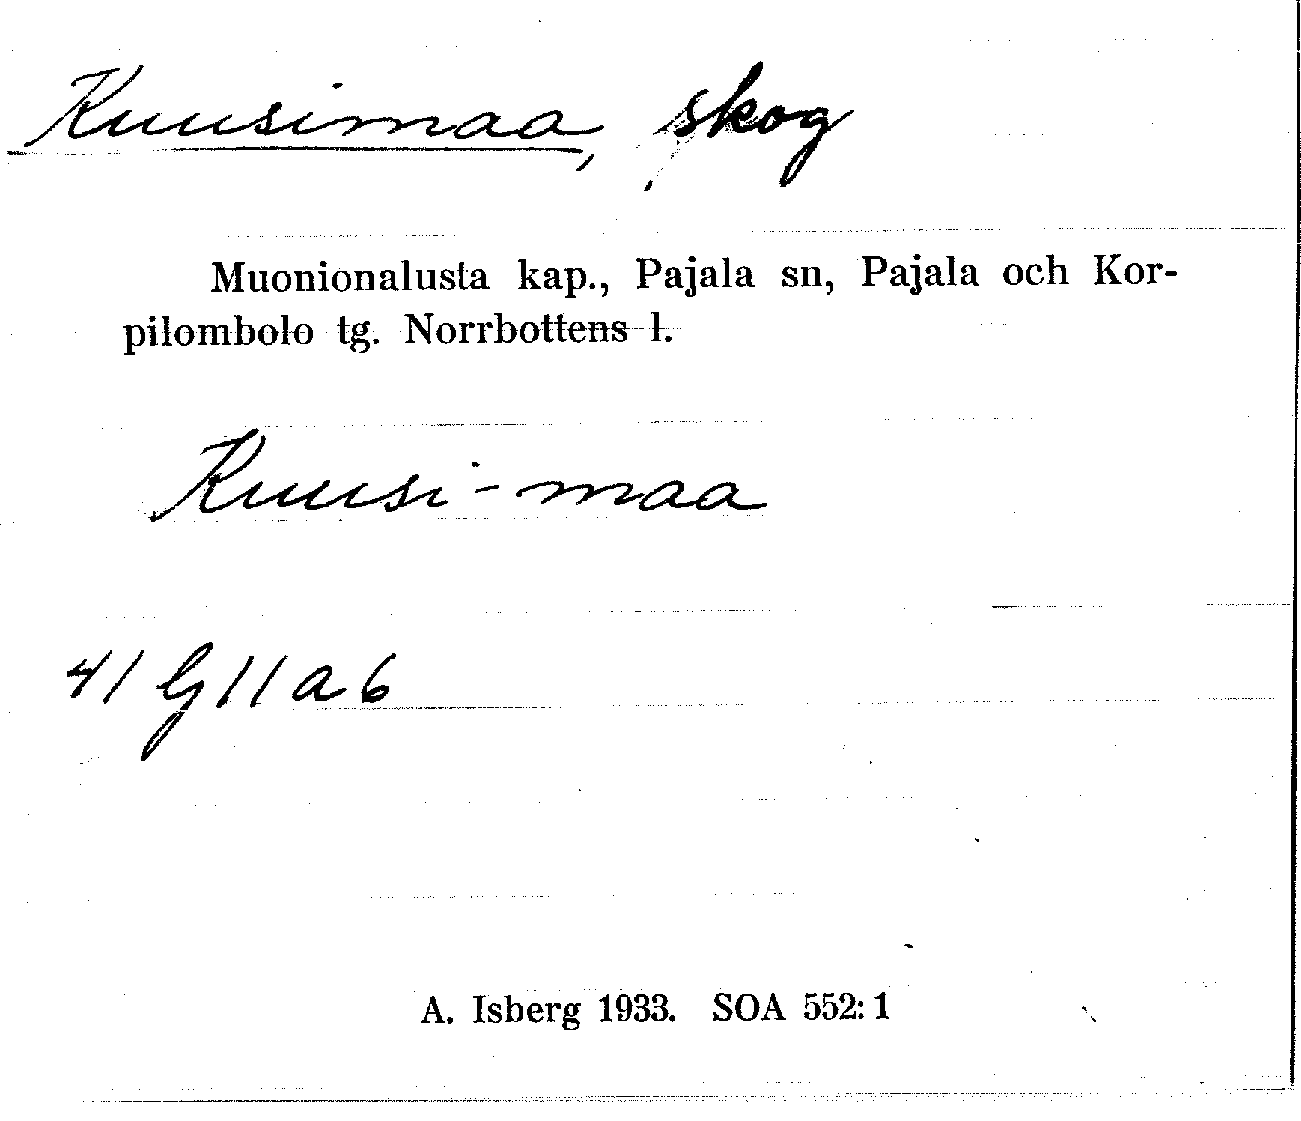 Kuusimaa, skog
Muonionalusta kap., Pajala sn, Pajala och Kor-
pilombolo tg. Norrbottens l.
Kuusi-maa
41 G 11 a 6
A. Isberg 1933. SOA 552:1